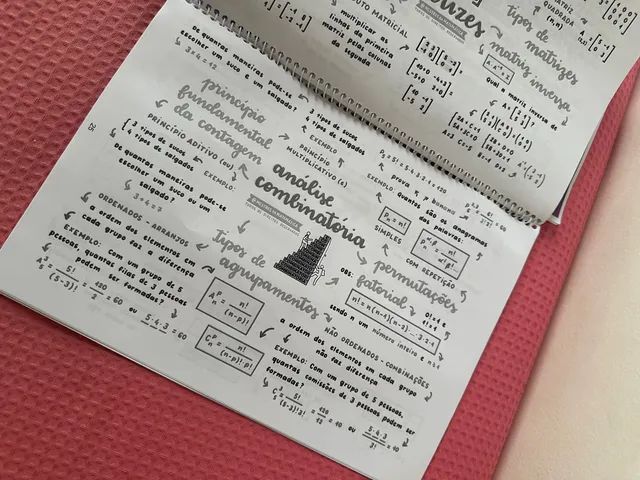 multiplicar as
linhas da primeira
matriz pelas colunas
da segunda
tipos de
matrizes
matriz inversa
Qual a matriz inversa de
análise
combinatória
princípio
fundamental
da contagem
De quantas maneiras pode-se
escolher um suco e um salgado?
3·4=12
3 tipos de sucos
4 tipos de salgados
EXEMPLO
PRINCÍPIO
MULTIPLICATIVO (e)
PRINCÍPIO ADITIVO (ou)
3 tipos de sucos
4 tipos de salgados
EXEMPLO:
De quantas maneiras pode-se
escolher um suco ou um
salgado?
3+4=7
tipos de
agrupamentos
ORDENADOS - ARRANJOS
a ordem dos elementos em
cada grupo faz a diferença
EXEMPLO: Com um grupo de 5
pessoas, quantas filas de 3 pessoas
podem ser formadas?
A₅³ = 5!/(5-3)! = 120/2 = 60
ou 5·4·3 = 60
Aₙᵖ = n!/(n-p)!
Cₙᵖ = n!/(n-p)!p!
NÃO ORDENADOS - COMBINAÇÕES
a ordem dos elementos em cada grupo
não faz diferença
EXEMPLO: Com um grupo de 5 pessoas,
quantas comissões de 3 pessoas podem ser
formadas?
C₅³ = 5!/(5-3)!3! = 120/12 = 10 ou 5·4·3/3! = 10
permutações
Quantos são os anagramas
das palavras:
EXEMPLO
prova
5! = 5·4·3·2·1 = 120
SIMPLES
Pₙ = n!
COM REPETIÇÃO
fatorial
OBS:
0! = 1
1! = 1
n! = n(n-1)(n-2)·...·3·2·1
sendo n um número inteiro e n≥1